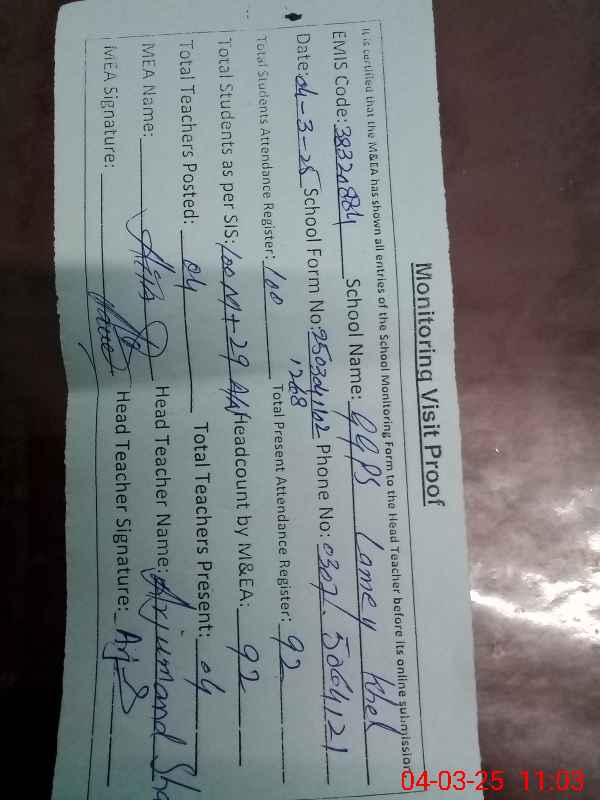 Monitoring Visit Proof
It is certified that the M&EA has shown all entries of the School Monitoring Form to the Head Teacher before its online submission
EMIS Code: 38321884 School Name: GGPS Lamey Khel
Date: 04-3-25 School Form No: 250304102 Phone No: 0307.5064121
1268
Total Students Attendance Register: 100 Total Present Attendance Register: 92
Total Students as per SIS: 100 M + 29 Headcount by M&EA: 92
Total Teachers Posted: 04 Total Teachers Present: 04
MEA Name: Head Teacher Name: Arjumand
MEA Signature: Head Teacher Signature:
04-03-25 11:03